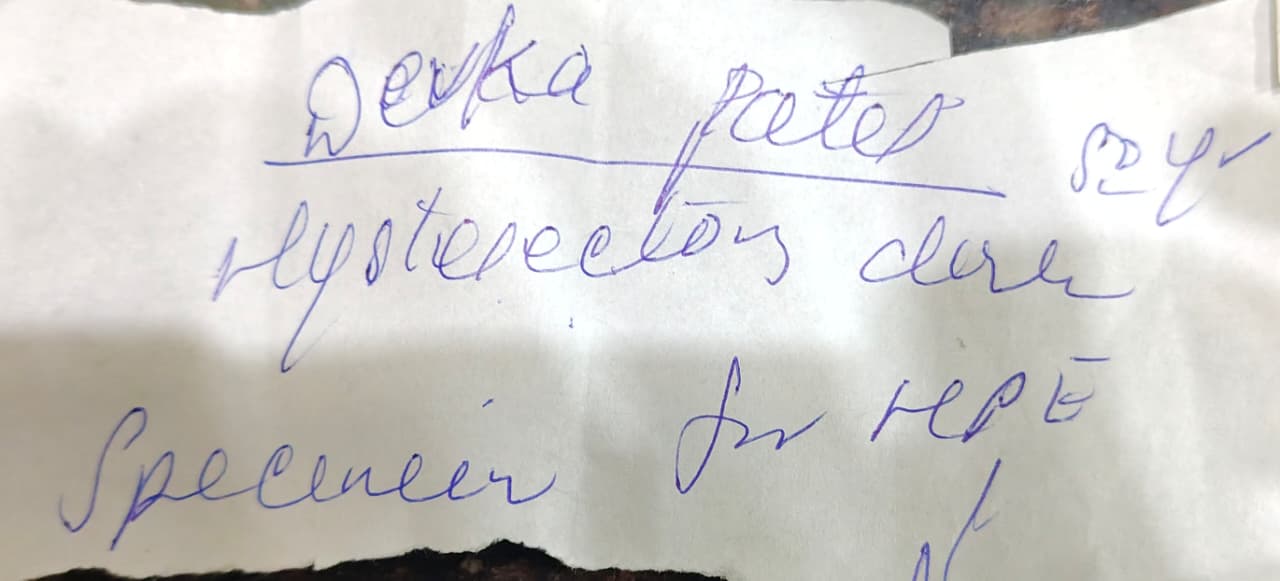 Devka Patel 50 yr
Hysterectomy done
Specimen for HPE